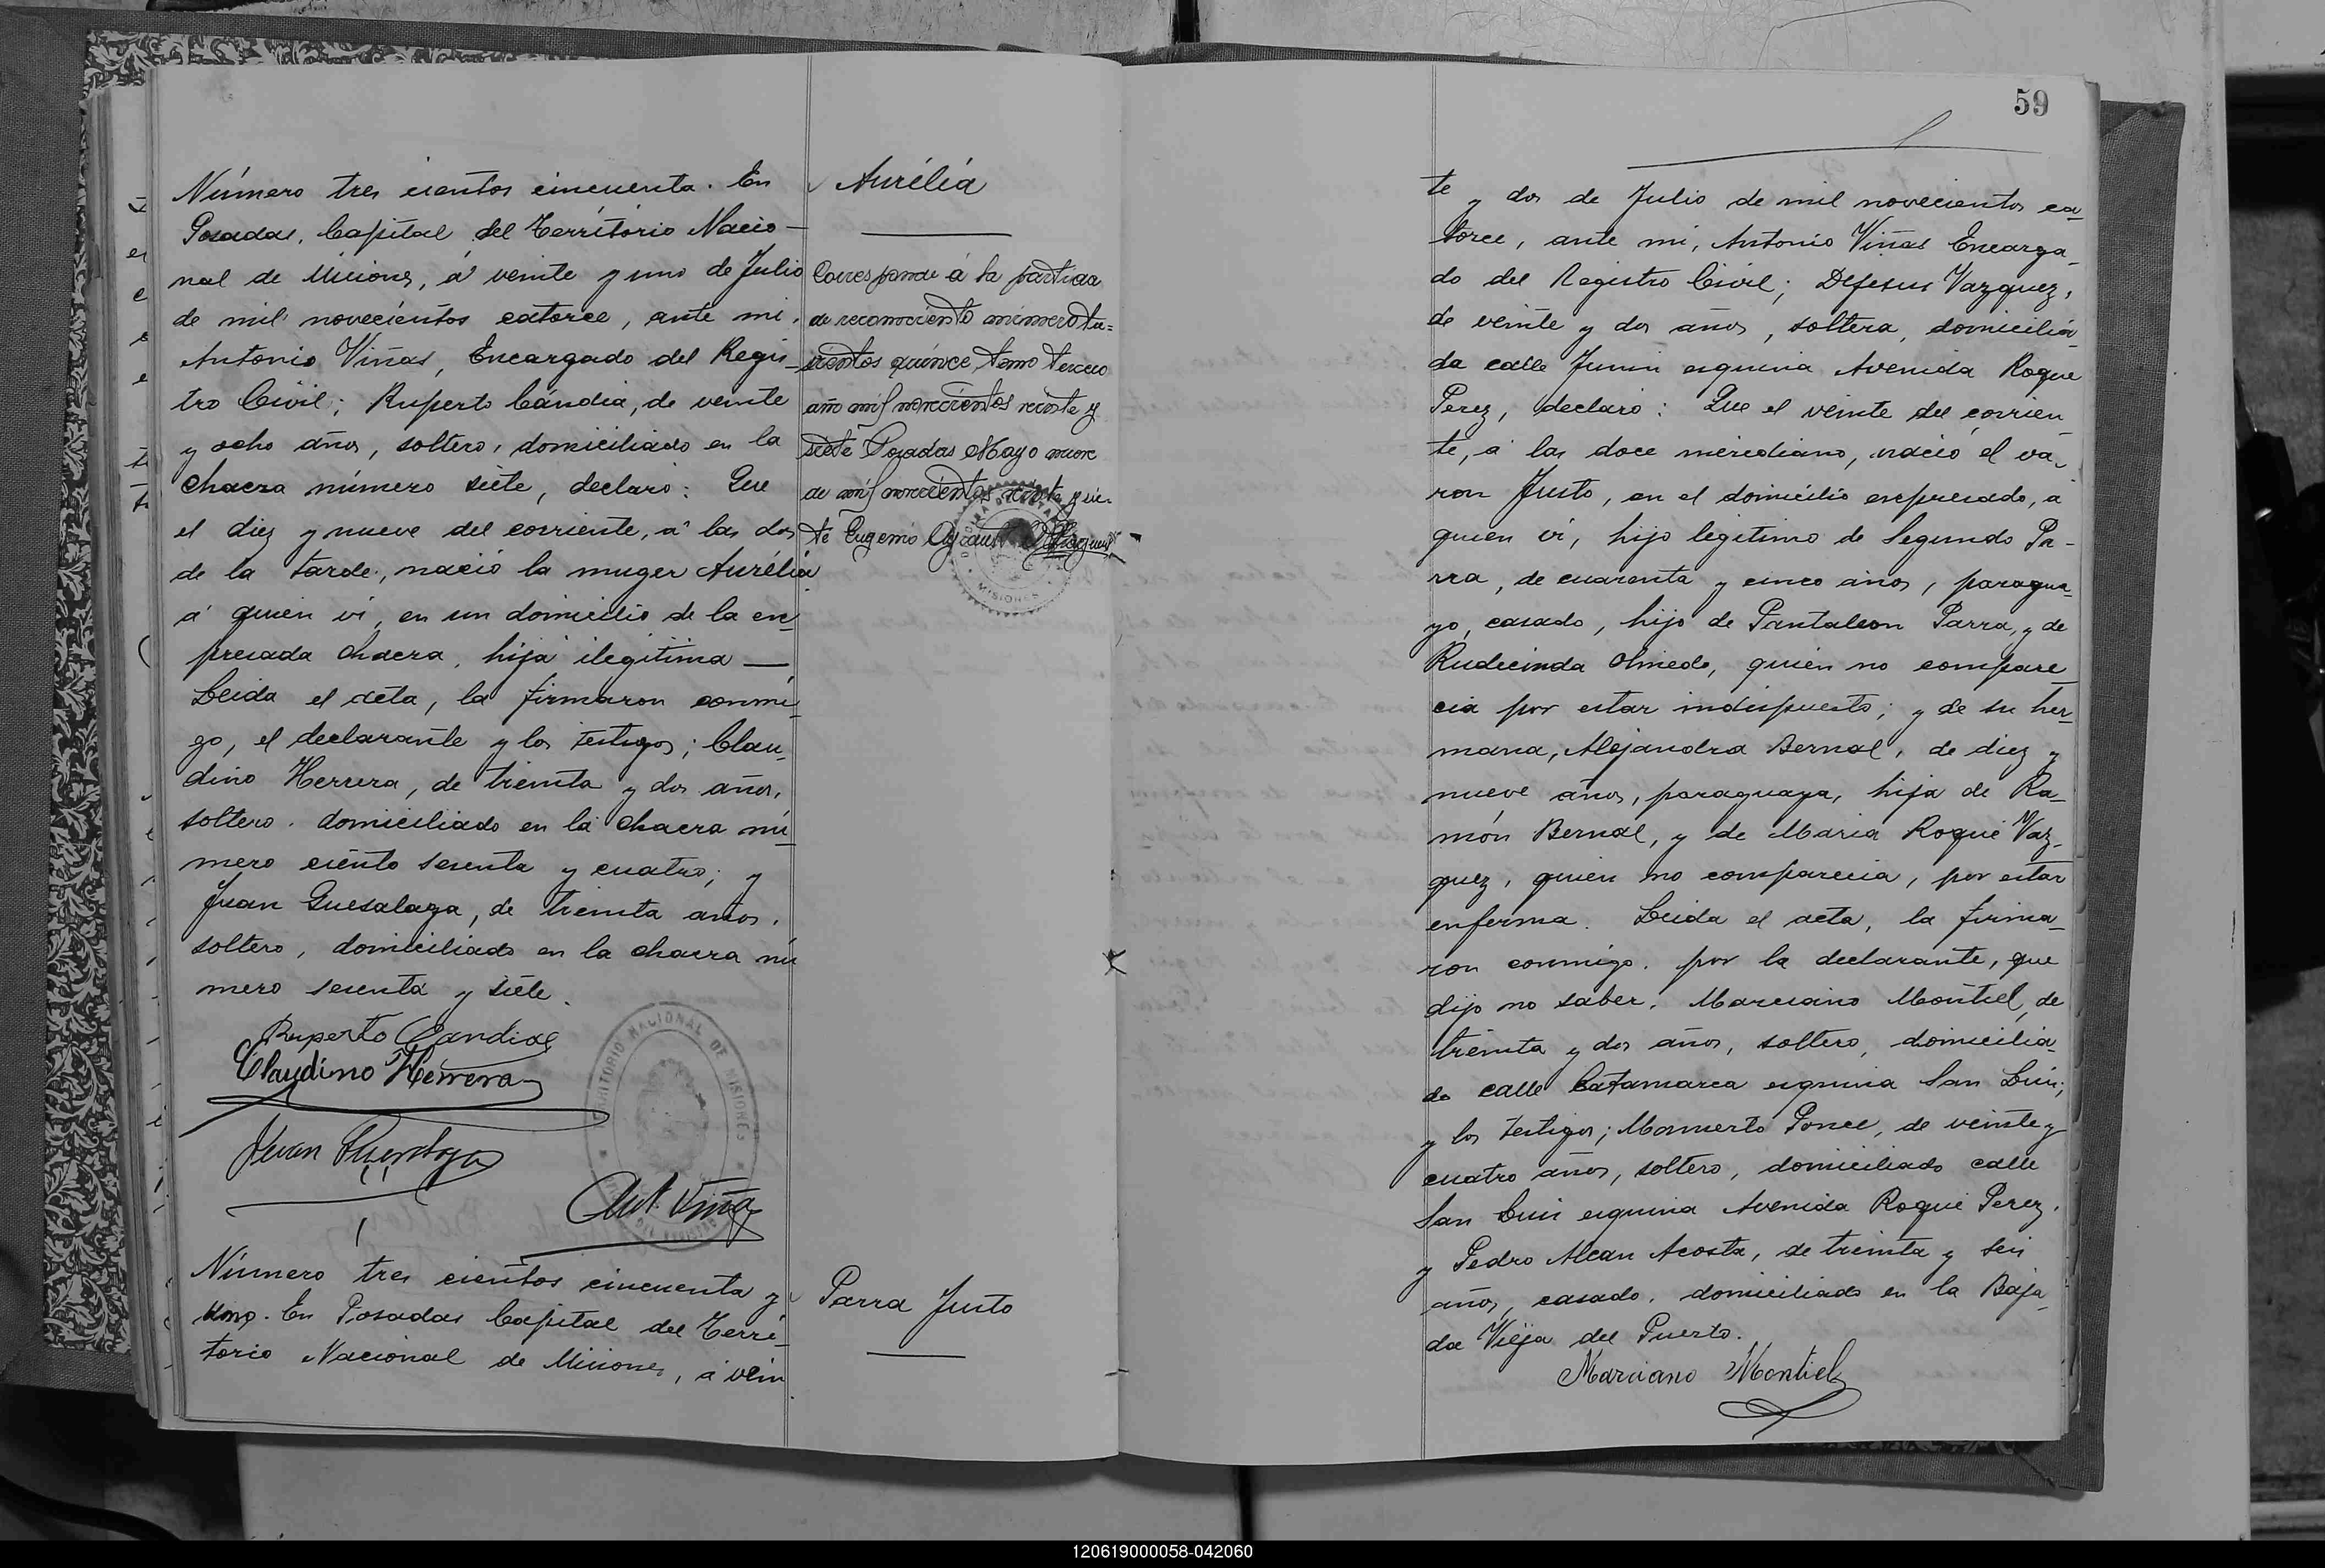 Número tres cientos cincuenta. En
Posadas, Capital del Territorio Nacio-
nal de Misiones, á veinte y uno de Julio
de mil novecientos catorce, ante mi,
Antonio Viñas, Encargado del Regis-
tro Civil; Ruperto Cándia, de veinte
y ocho años, soltero, domiciliado en la
chacra número siete, declaró: Que
el diez y nueve del corriente, á las dos
de la tarde, nació la muger Aurélia
á quien vi, en un domicilio de la ex-
presada chacra, hija ilegitima —
Leida el acta, la firmaron conmi-
go, el declarante y los testigos; Clau-
dino Herrera, de treinta y dos años,
soltero, domiciliado en la chacra nú-
mero ciento sesenta y cuatro; y
Juan Guesalaga, de treinta años,
soltero, domiciliado en la chacra nú-
mero sesenta y siete.
Ruperto Candia
Claudino Herrera
Juan
Ant. Viñas
TERRITORIO NACIONAL DE MISIONES
Número tres cientos cincuenta y
uno. En Posadas Capital del Terri-
torio Nacional de Misiones, á vein
Aurélia
Corresponde á la partida
de reconocimiento número tres-
cientos quince, tomo tercero
año mil novecientos veinte y
siete Posadas Mayo nueve
de mil novecientos veinte y sie-
te Eugenio
MISIONES
Parra Justo
59
te y dos de Julio de mil novecientos ca-
torce, ante mi, Antonio Viñas Encarga-
do del Registro Civil; Dejesus Vazquez,
de veinte y dos años, soltera, domicilia-
da calle Junin esquina Avenida Roque
Perez, declaró: Que el veinte del corrien-
te, á las doce meridiano, nació el va-
ron Justo, en el domicilio expresado, á
quien vi, hijo legitimo de Segundo Pa-
rra, de cuarenta y cinco años, paragua-
yo, casado, hijo de Pantaleon Parra, y de
Rudecinda Olmedo, quien no compare-
cia por estar indispuesto; y de su her-
mana, Alejandra Bernal, de diez y
nueve años, paraguaya, hija de Ra-
món Bernal, y de Maria Roque Vaz-
quez, quien no comparecia, por estar
enferma. Leida el acta, la firma-
ron conmigo, por la declarante, que
dijo no saber, Marciano Montiel, de
treinta y dos años, soltero, domicilia-
do calle Catamarca esquina San Luis;
y los testigos; Mamerto Ponce, de veinte y
cuatro años, soltero, domiciliado calle
San Luis esquina Avenida Roque Perez,
y Pedro Alcan Acosta, de treinta y seis
años, casado, domiciliado en la Baja-
da Vieja del Puerto.
Marciano Montiel
120619000058-042060